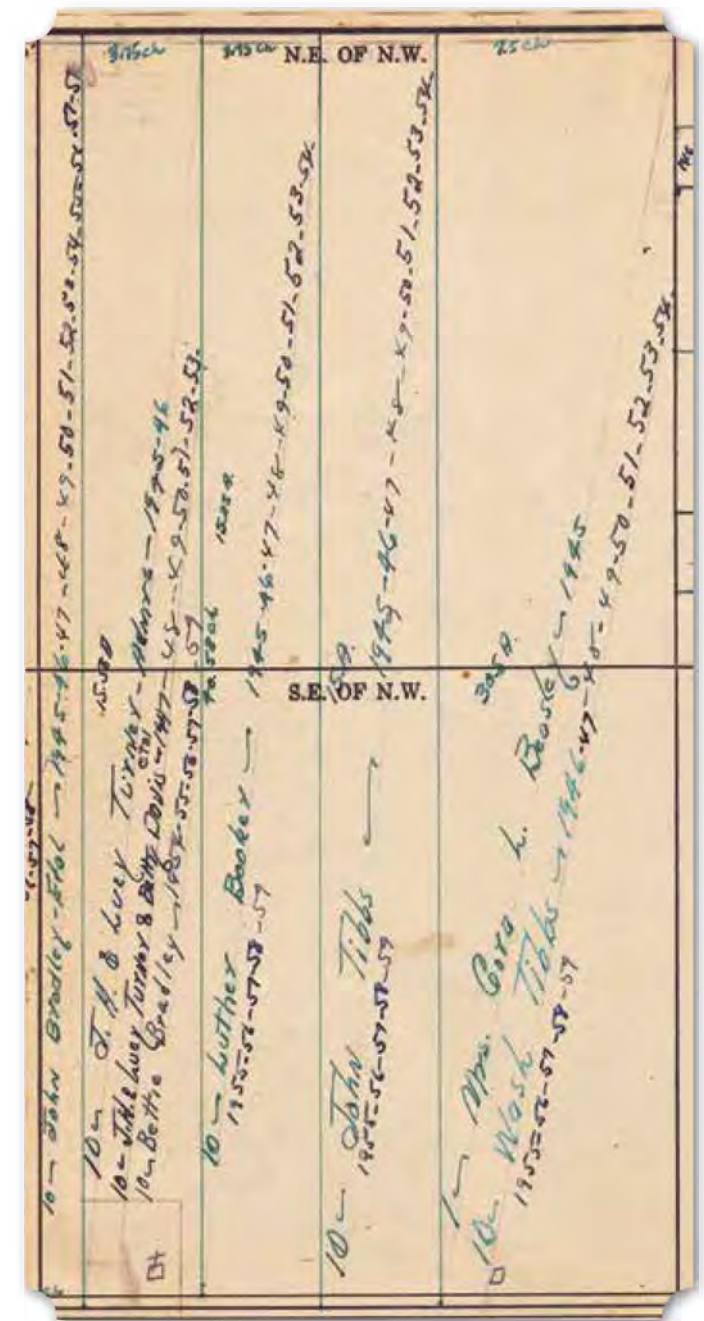 3.75ch
3.75ch
N.E. OF N.W.
25ch
10 - John Bradley - Etal - 1945-46-47-48-49-50-51-52-53-54-55-56-57-58
15.28A
10 - J. H. & Lucy Turner - 1945-46
10 - J.H. & Lucy Turner & Betty Davis - 1947-48-49-50-51-52-53.
etal
10 - Bettie Bradley - 1954-55-56-57-58-59
10 - Luther Booker - 1945-46-47-48-49-50-51-52-53-54.
1955-56-57-58-59
S.E. OF N.W.
10 - John Tibbs - 1945-46-47-48-49-50-51-52-53-54.
1955-56-57-58-59
30.5A.
1 - Mrs. Cora L. Beasley - 1945
10 - Wash Tibbs - 1946-47-48-49-50-51-52-53-54.
1955-56-57-58-59